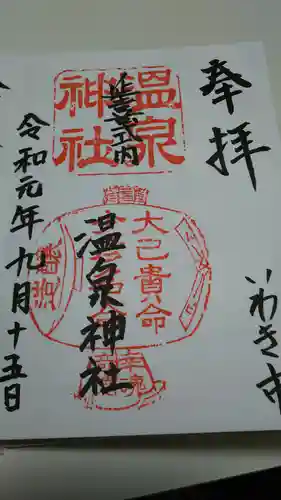 奉拝
いわき市
延喜式内
温泉神社
温泉神社
大己貴命
令和元年九月十五日